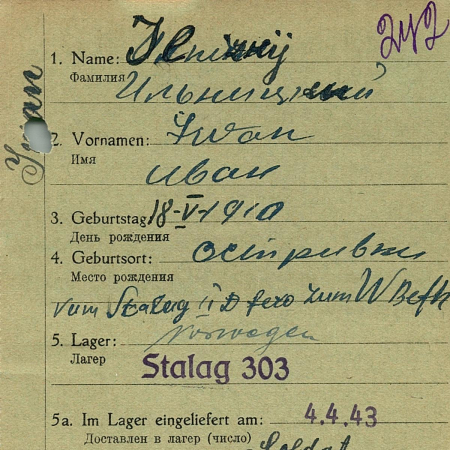 242
1. Name:
Фамилия
Ильницкий
Iwan
2. Vornamen: Iwan
Имя
Иван
3. Geburtstag: 18-V-1910
День рождения
4. Geburtsort: Островки
Место рождения
vom Stalag II D zum W Befh
Norwegen
5. Lager:
Лагер
Stalag 303
5a. Im Lager eingeliefert am: 4.4.43
Доставлен в лагер (число)
Soldat